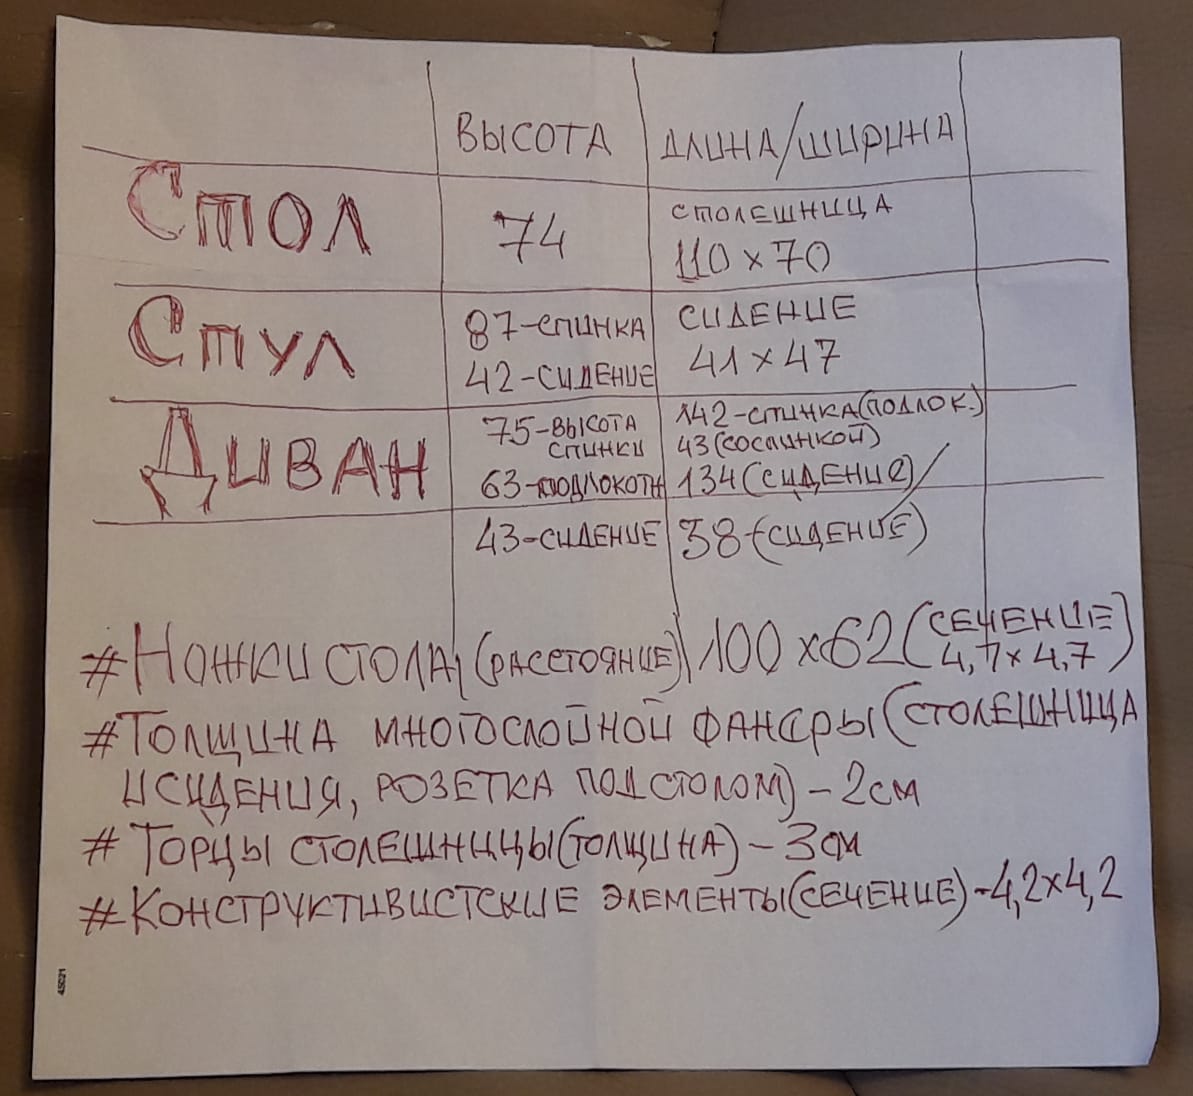 ВЫСОТА ДЛИНА/ШИРИНА
СТОЛ 74 СТОЛЕШНИЦА
110 х 70
СТУЛ 87-СПИНКА СИДЕНИЕ
42-СИДЕНИЕ 41 х 47
ДИВАН 75-ВЫСОТА СПИНКИ 142-СПИНКА(ПОДЛОК.)
43(СОСПИНКОЙ)
63-ПОДЛОКОТН 134(СИДЕНИЕ)/
43-СИДЕНИЕ 38-(СИДЕНИЕ)
#НОЖКИ СТОЛА,(РАССТОЯНИЕ) 100 х 62 (СЕЧЕНИЕ
4,7 х 4,7)
#ТОЛЩИНА МНОГОСЛОЙНОЙ ФАНЕРЫ(СТОЛЕШНИЦА
И СИДЕНИЯ, РОЗЕТКА ПОД СТОЛОМ) - 2 СМ
# ТОРЦЫ СТОЛЕШНИЦЫ(ТОЛЩИНА) - 3 СМ
#КОНСТРУКТИВИСТСКИЕ ЭЛЕМЕНТЫ(СЕЧЕНИЕ)-4,2х4,2
45C21